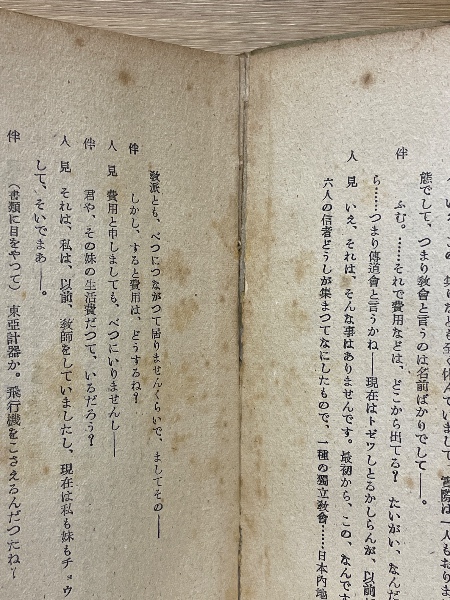 態でして、つまり敎會と言うのは名前ばかりでして――。
伴　ふむ。……それで費用などは、どこから出てる？　たいがい、なんだ
ら……つまり傳道會と言うかね――現在はトゼツしとるかしらんが、以前
人見　いえ、それは、そんな事はありませんです。最初から、この、なんです
六人の信者どうしが集まつてなにしたもので、一種の獨立敎會……日本內地
敎派とも、べつにつながつて居りませんくらいで、ましてその――
伴　しかし、すると費用は、どうするね？
人見　費用と申しましても、べつにいりませんし――
伴　君や、その妹の生活費だつて、いるだろう？
人見　それは、私は、以前、敎師をしていましたし、現在は私も妹もチョウ
して、そいでまあ――。
伴　（書類に目をやつて）東亞計器か。飛行機をこさえるんだつたね？